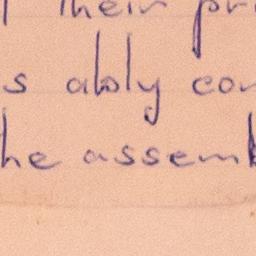 their pri
s ably con
he assemb